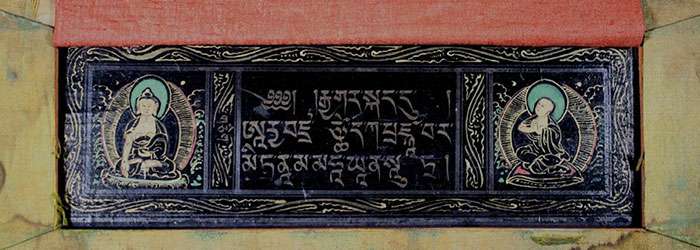 ༄༅༅། །རྒྱ་གར་སྐད་དུ། །
ཨཱརྱ་བཛྲ་ཙྪེ་དི་ཀ་པྲཛྙཱ་པཱ་ར་
མི་ཏཱ་ནཱ་མ་མ་ཧཱ་ཡཱ་ན་སཱུ་ཏྲ །